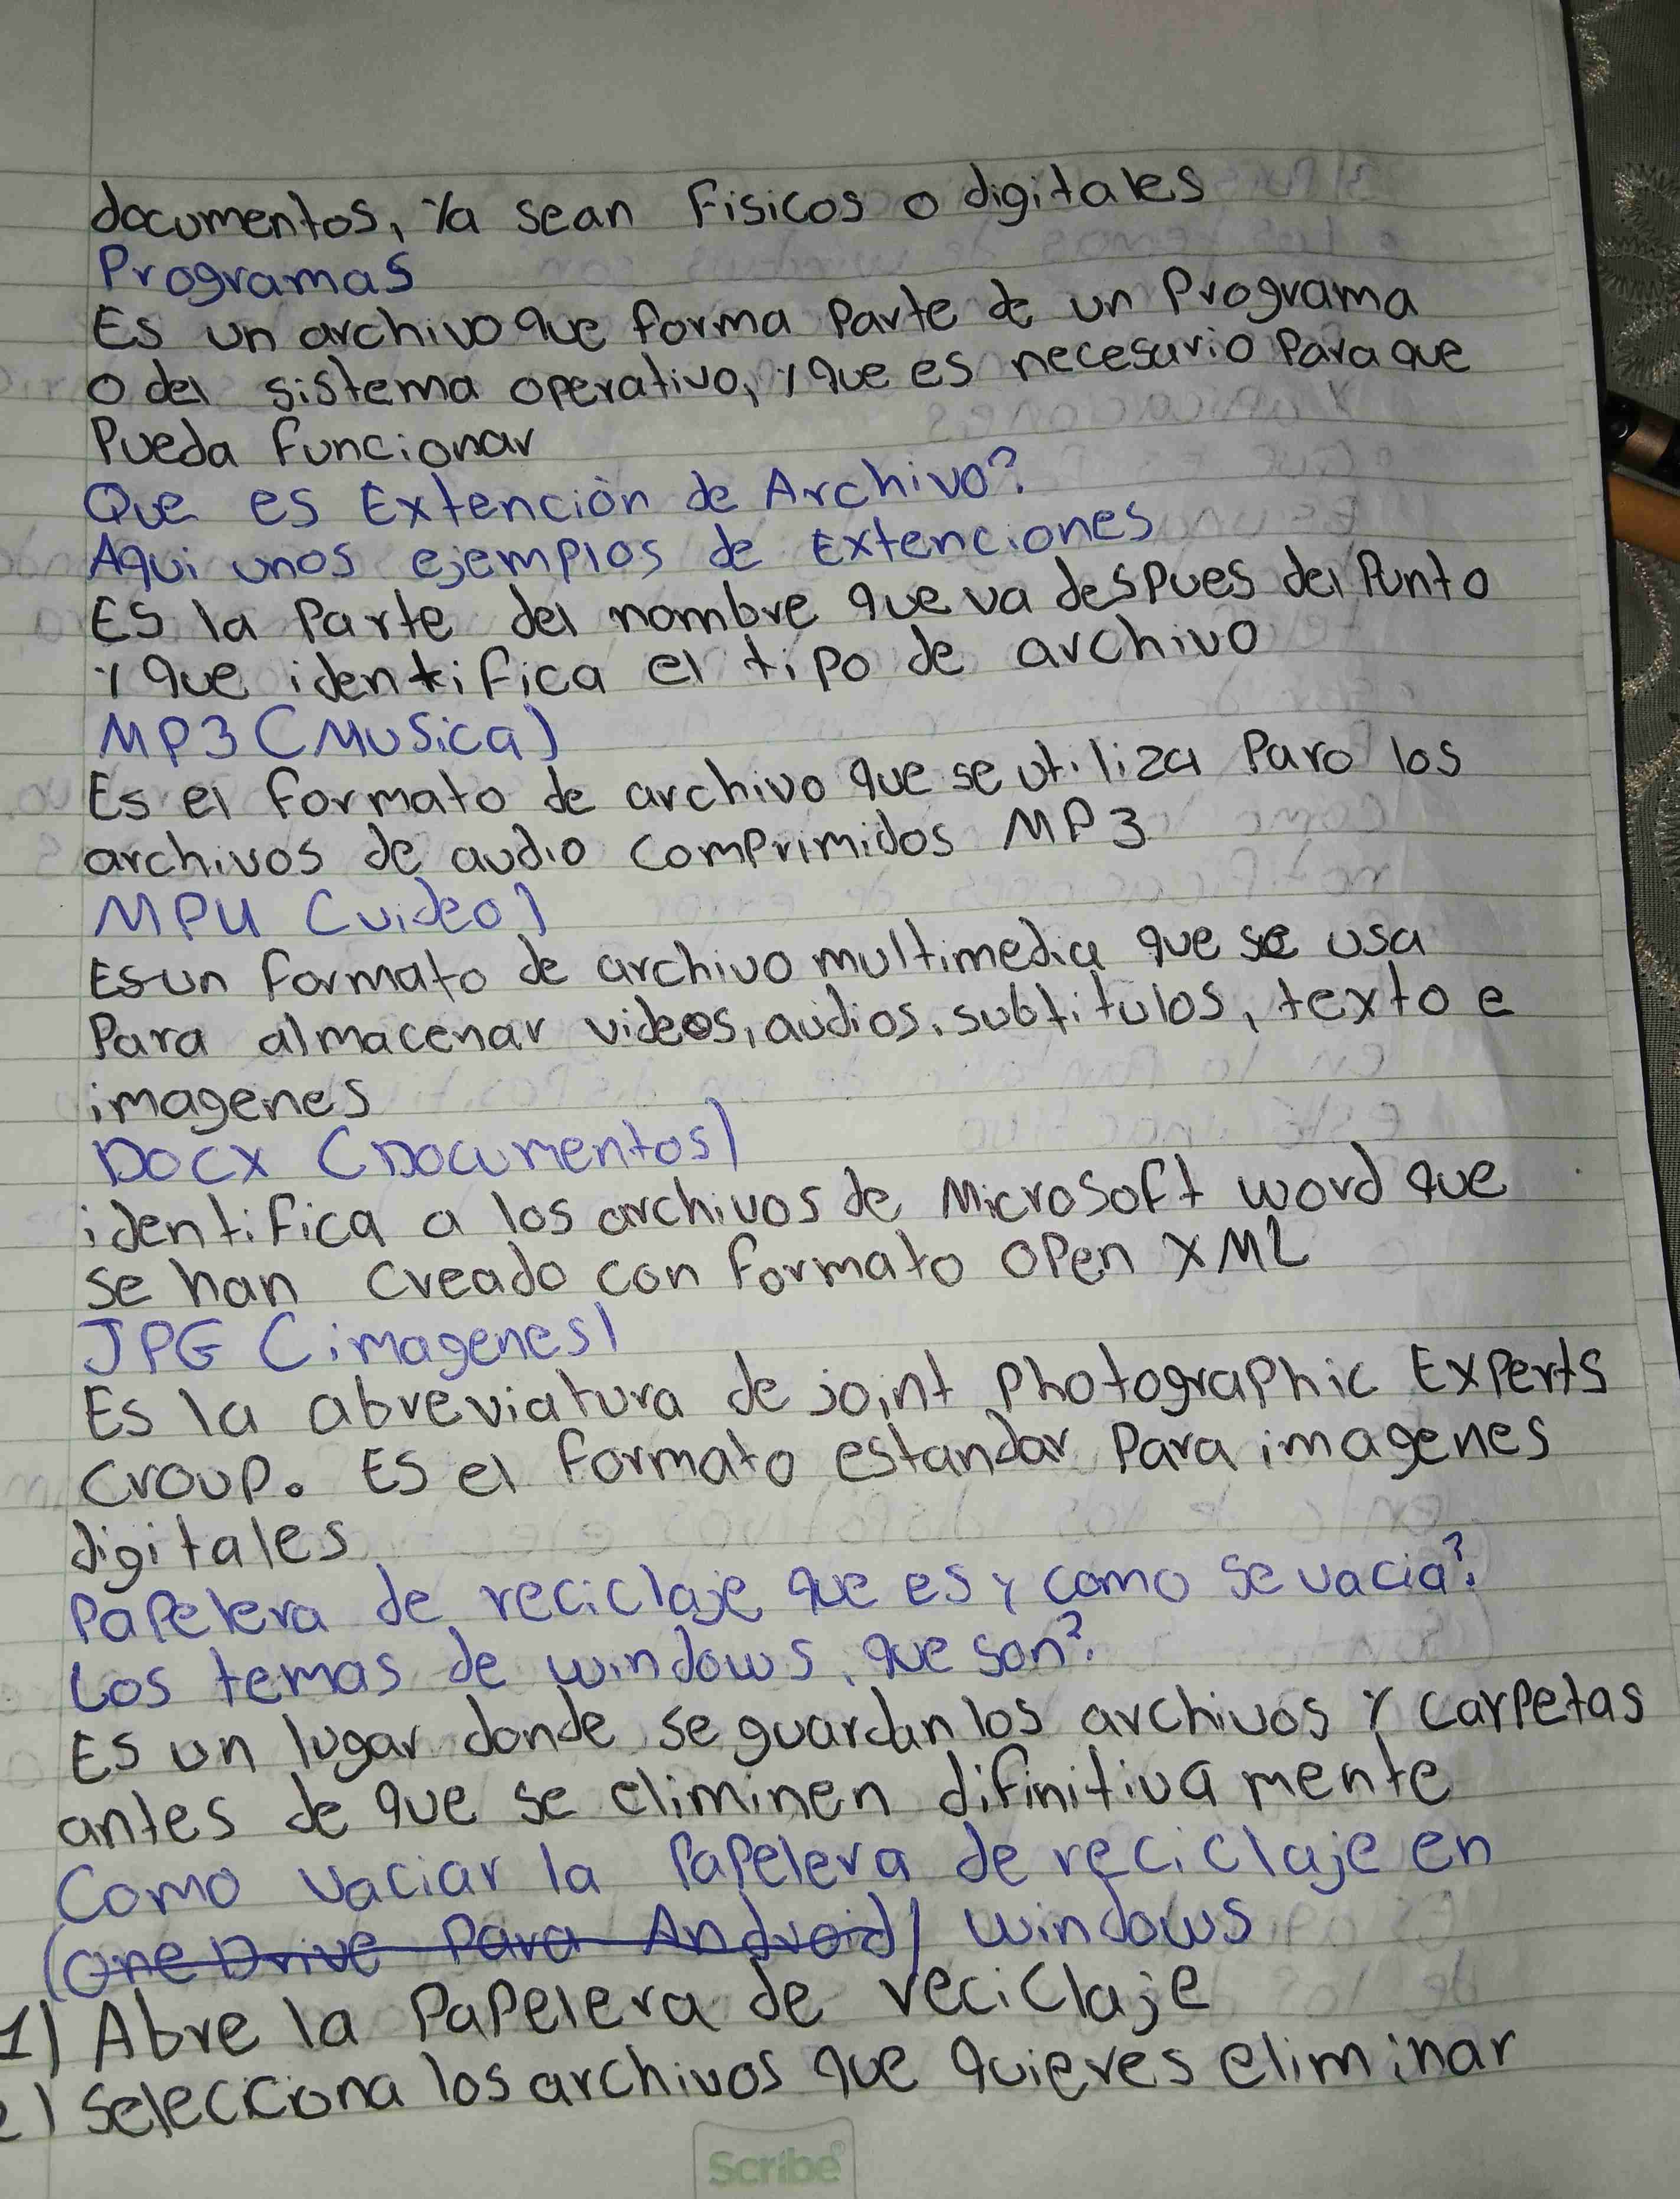 documentos, Ya sean Fisicos o digitales
Programas
Es un archivo que forma Parte de un Programa
O del sistema operativo, y que es necesario Para que
Pueda funcionar
Que es Extención de Archivo?
Aqui unos ejemplos de Extenciones
Es la Parte del nombre que va despues del Punto
y que identifica el tipo de archivo
MP3 (Musica)
Es el formato de archivo que se utiliza Para los
archivos de audio comprimidos MP3
MPU (video)
Es un formato de archivo multimedia que se usa
Para almacenar videos, audios, subtitulos, texto e
imagenes
Docx (Documentos)
identifica a los archivos de Microsoft word que
se han creado con formato open XML
JPG (imagenes)
Es la abreviatura de joint photographic Experts
Croup. Es el formato estandar Para imagenes
digitales
Papelera de reciclaje que es y como se vacia?
Los temas de windows, que son?
Es un lugar donde se guardan los archivos y carpetas
antes de que se eliminen difinitiva mente
Como vaciar la Papelera de reciclaje en
(One Drive Para Android) windows
1) Abre la Papelera de reciclaje
2) Selecciona los archivos que quieres eliminar
Scribe